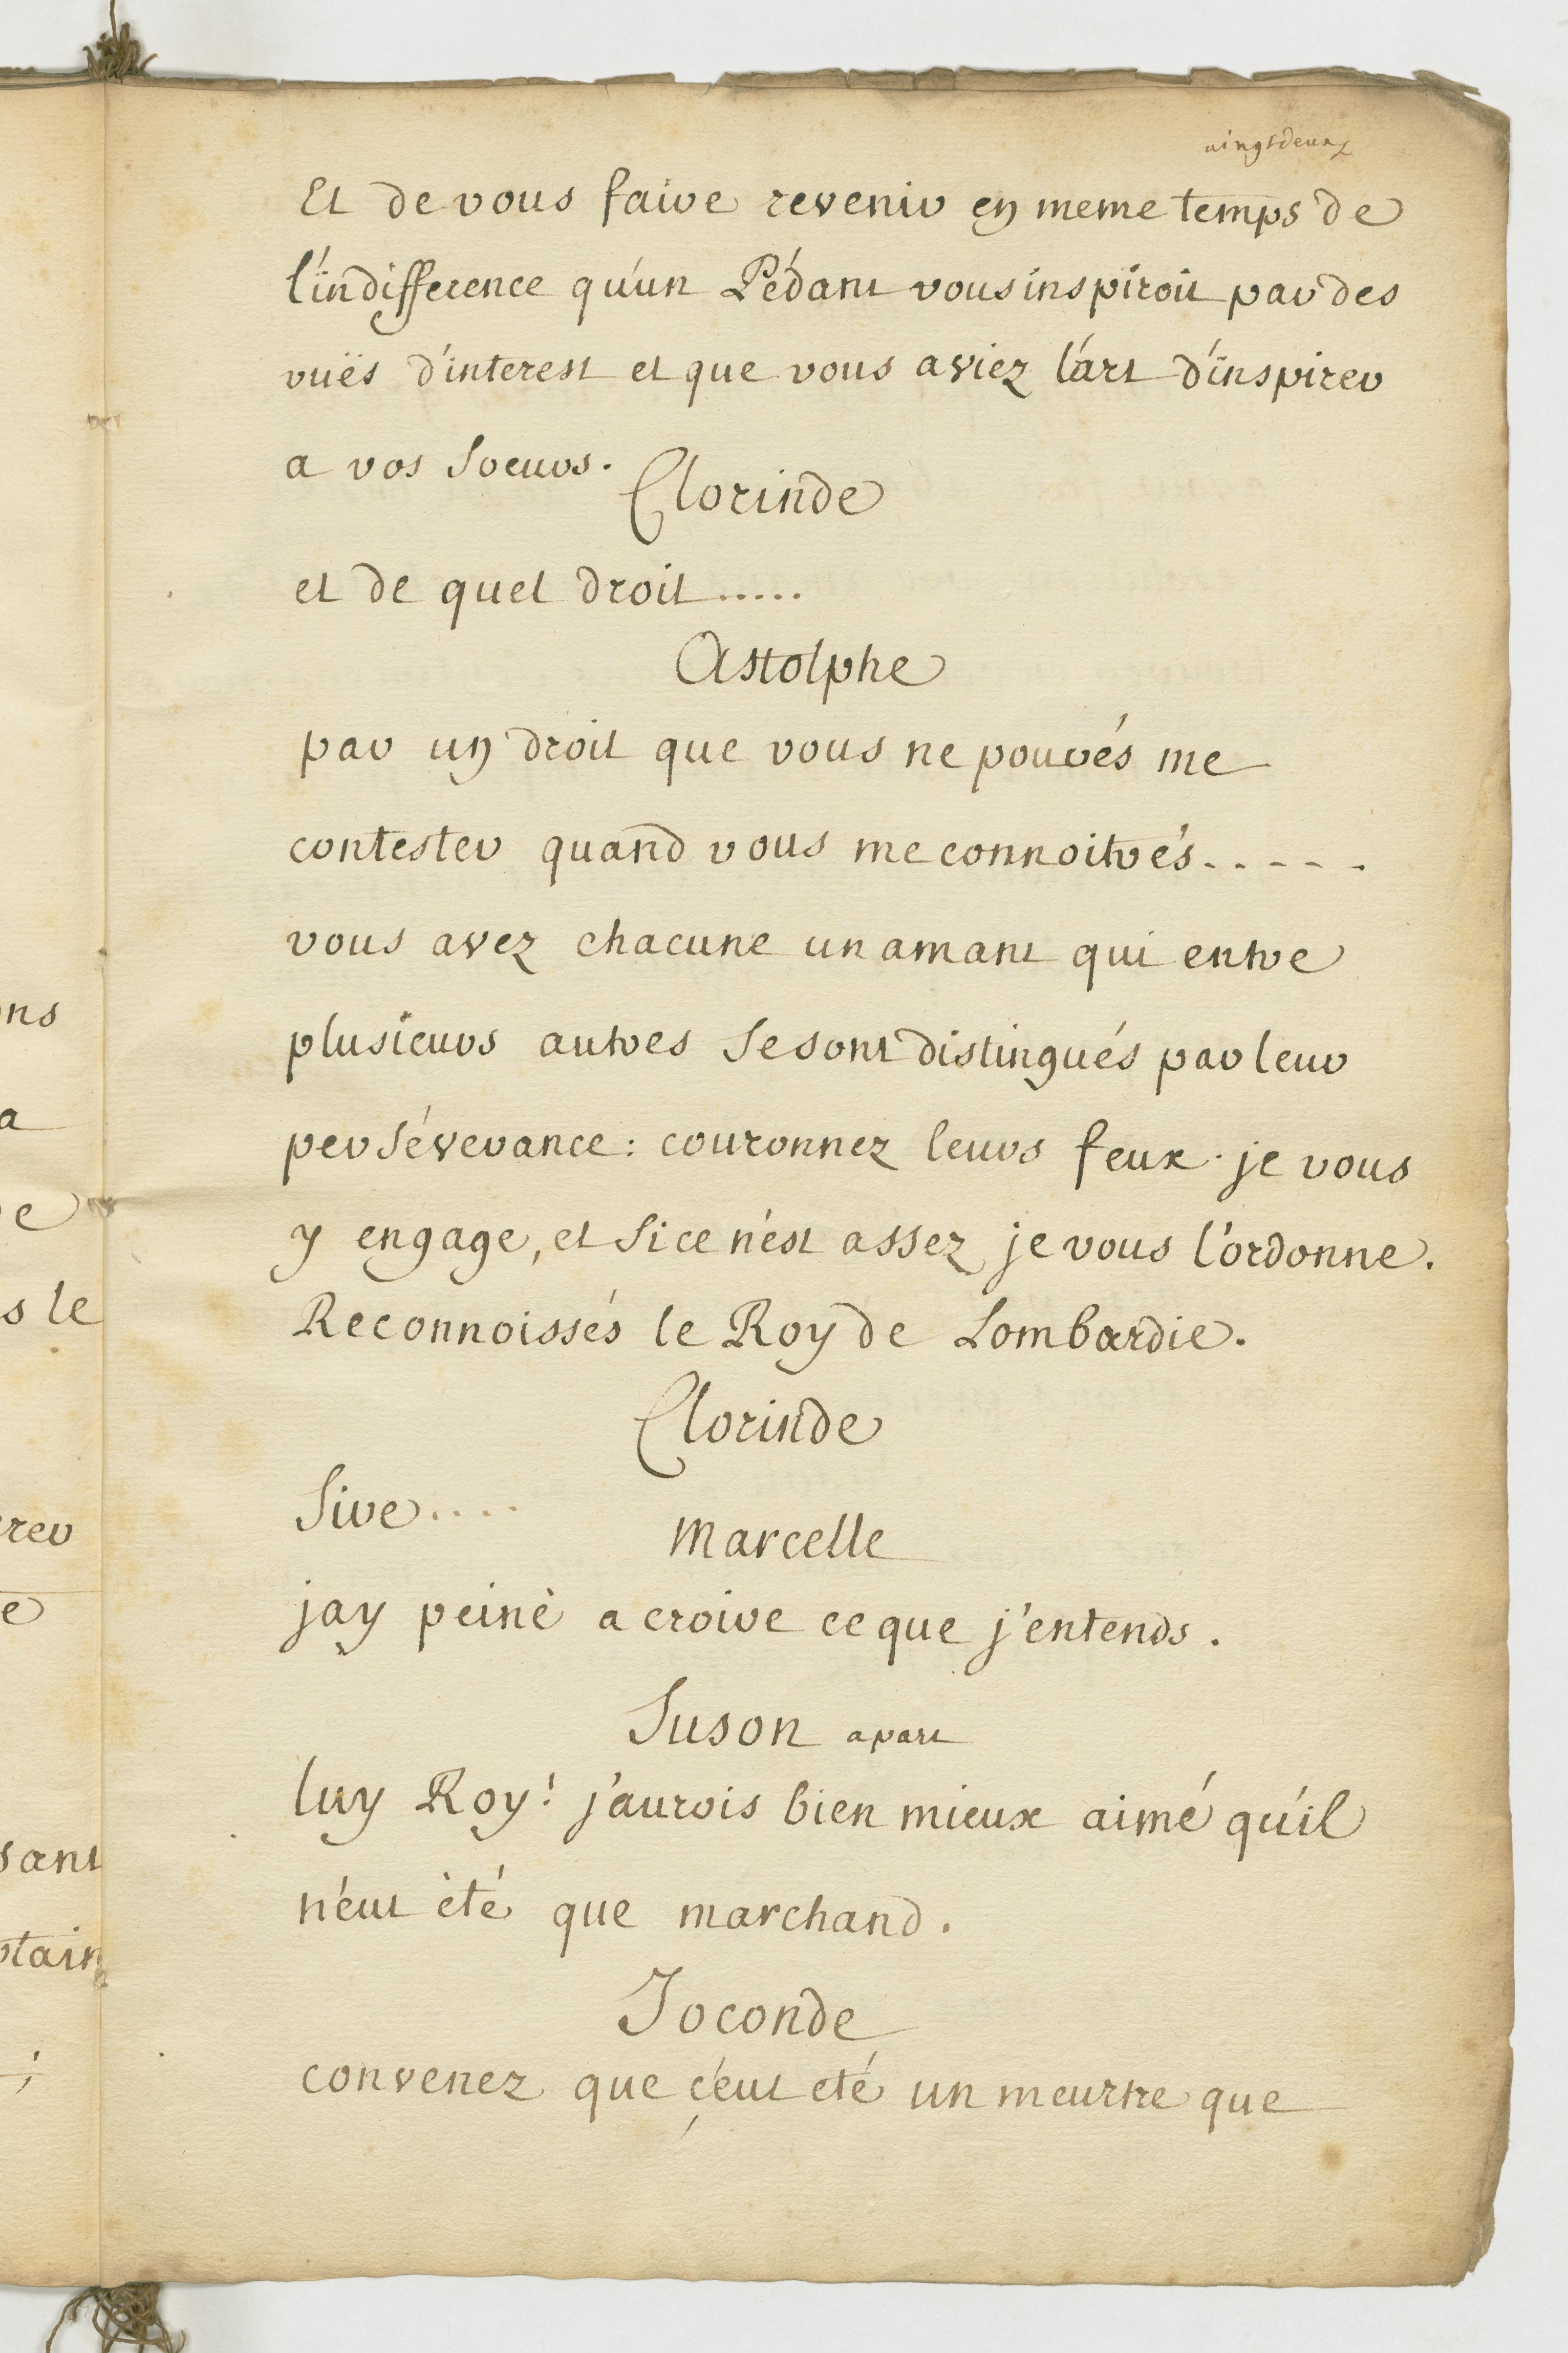 vingtdeux
Et de vous faire revenir en meme temps de
l'indifference qu'un Pédant vous inspiroit par des
vuës d'interest et que vous aviez l'art d'inspirer
a vos soeurs.
Clorinde
et de quel droit .....
Astolphe
par un droit que vous ne pouvés me
contester quand vous me connoitrés - - - - -
vous avez chacune un amant qui entre
plusieurs autres se sont distingués par leur
persévérance : couronnez leurs feux. je vous
y engage, et si ce n'est assez je vous l'ordonne.
Reconnoissés le Roy de Lombardie.
Clorinde
Sire ....
Marcelle
jay peine a croire ce que j'entends.
Suson apart
luy Roy! j'aurois bien mieux aimé qu'il
n'eut été que marchand.
Joconde
convenez que ç'eut eté un meurtre que
ns
a
e
s le
rer
e
sant
tain
;